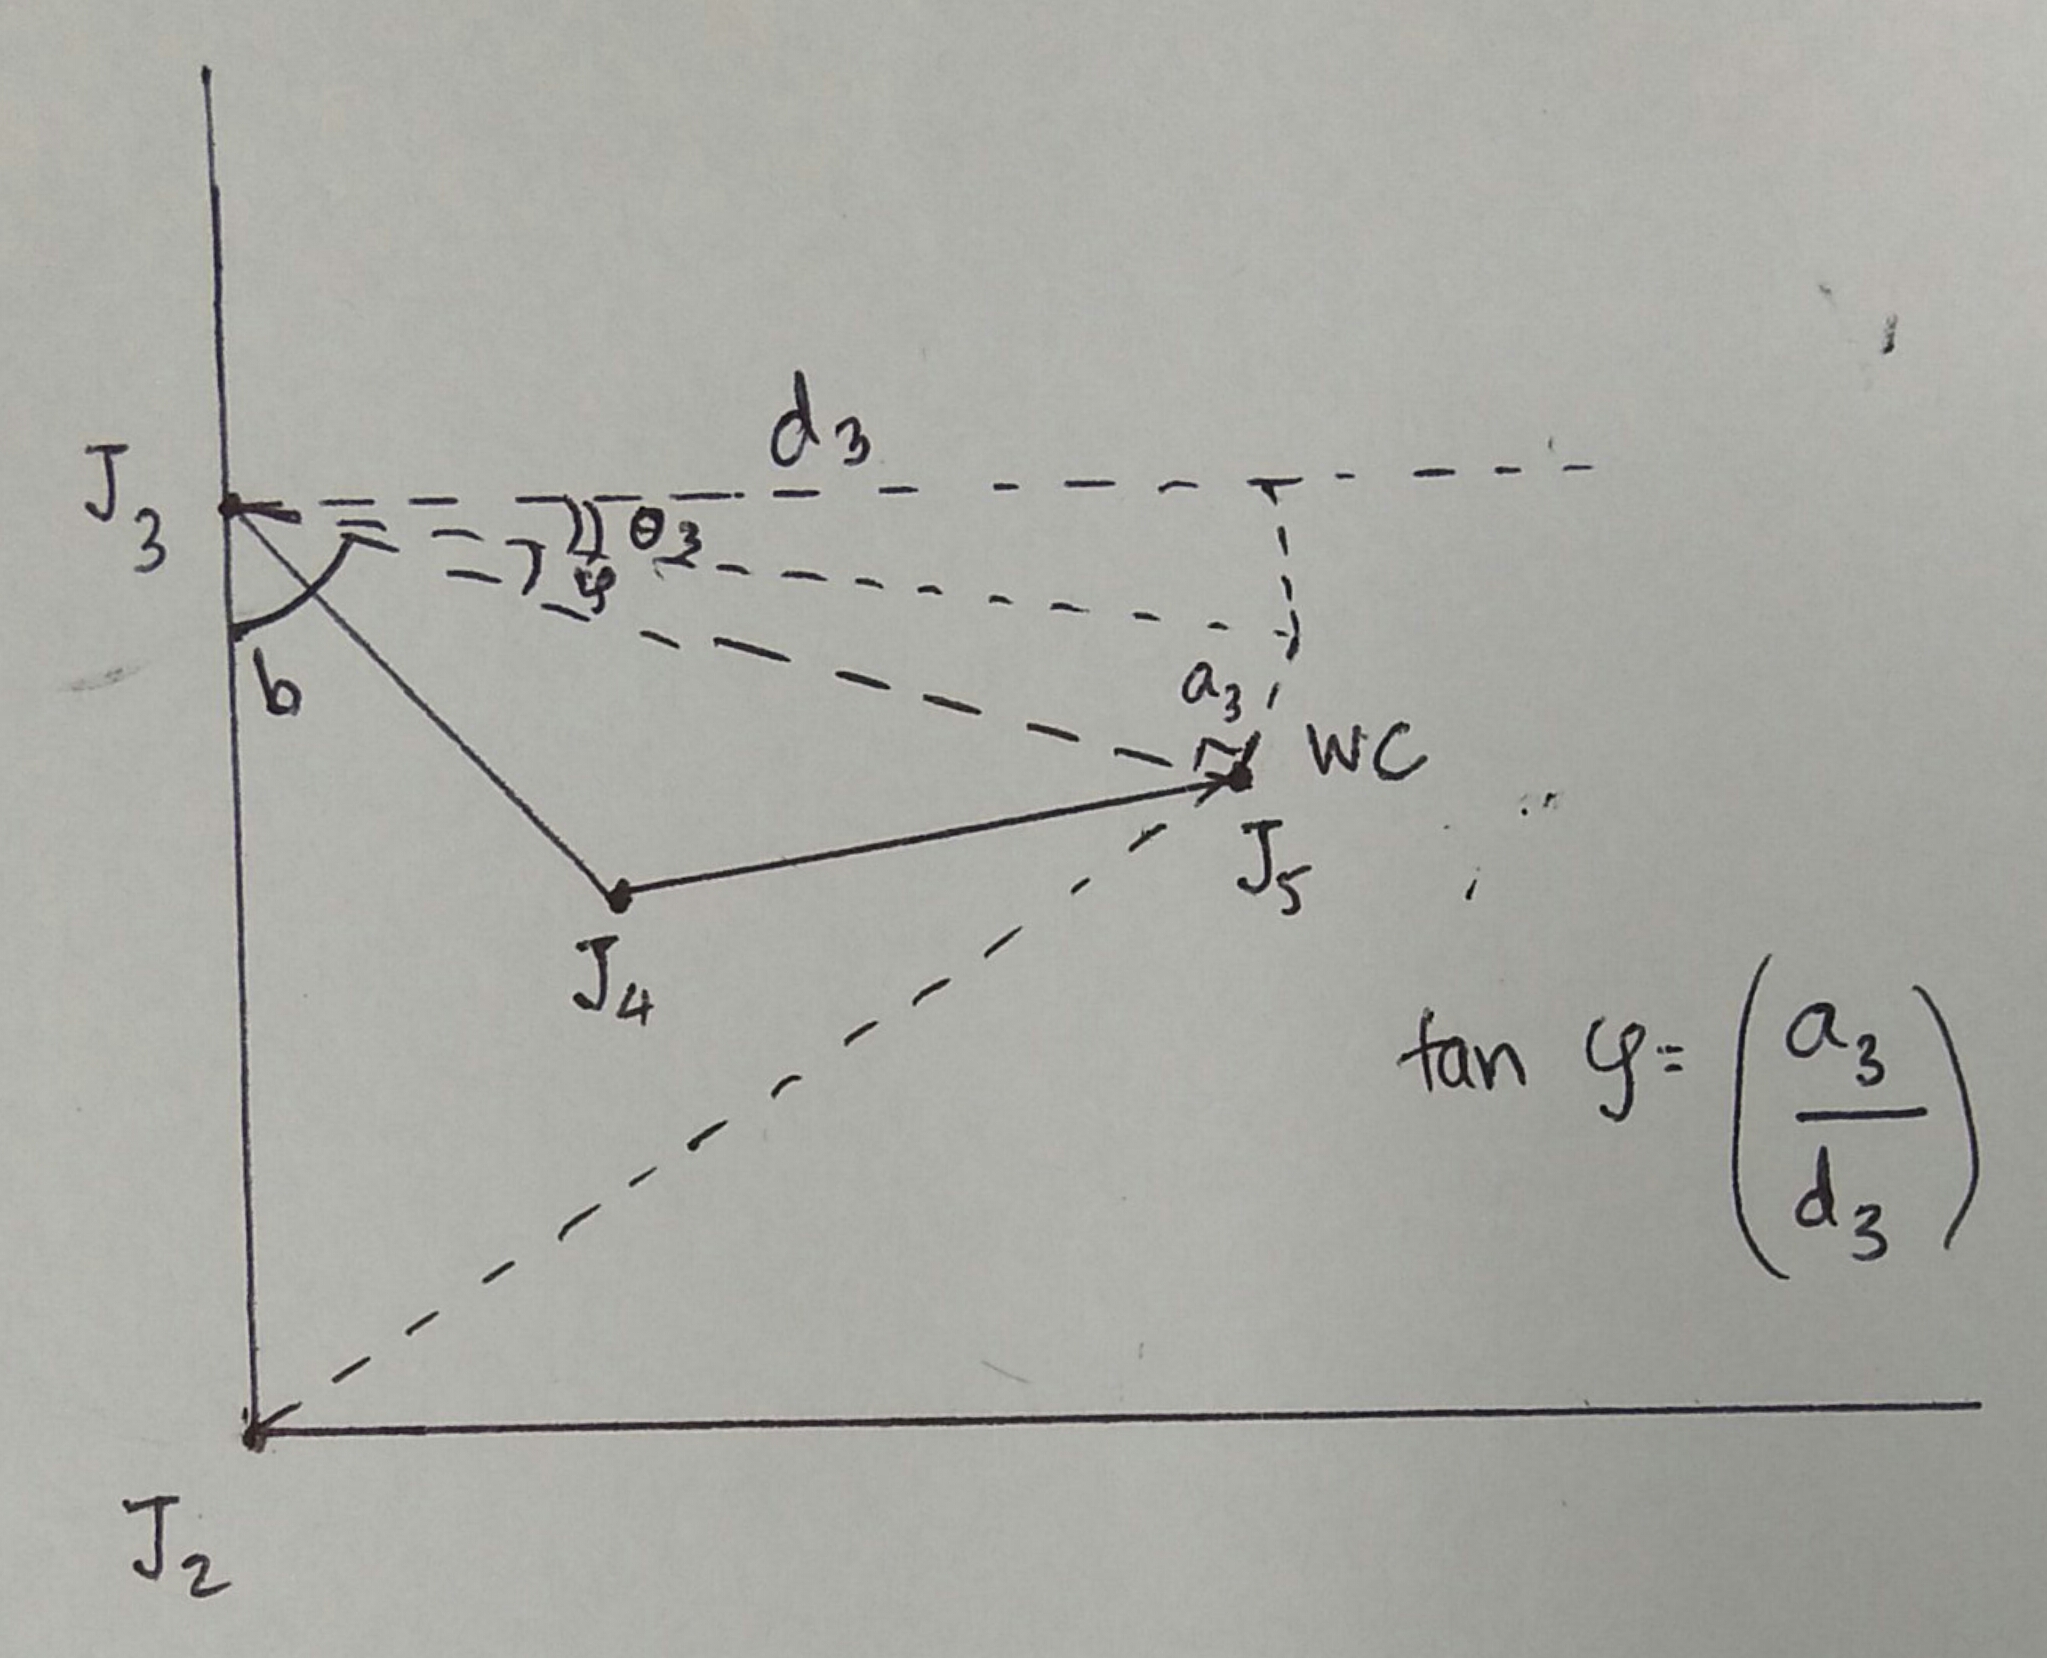 d3
J3
θ3
φ
b
a3
WC
J5
J4
tan φ = (a3/d3)
J2